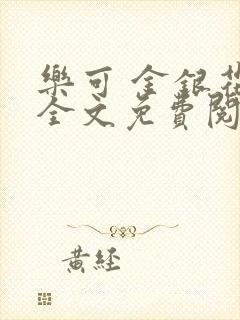 樂可 金銀花
全文免費閱
黃經